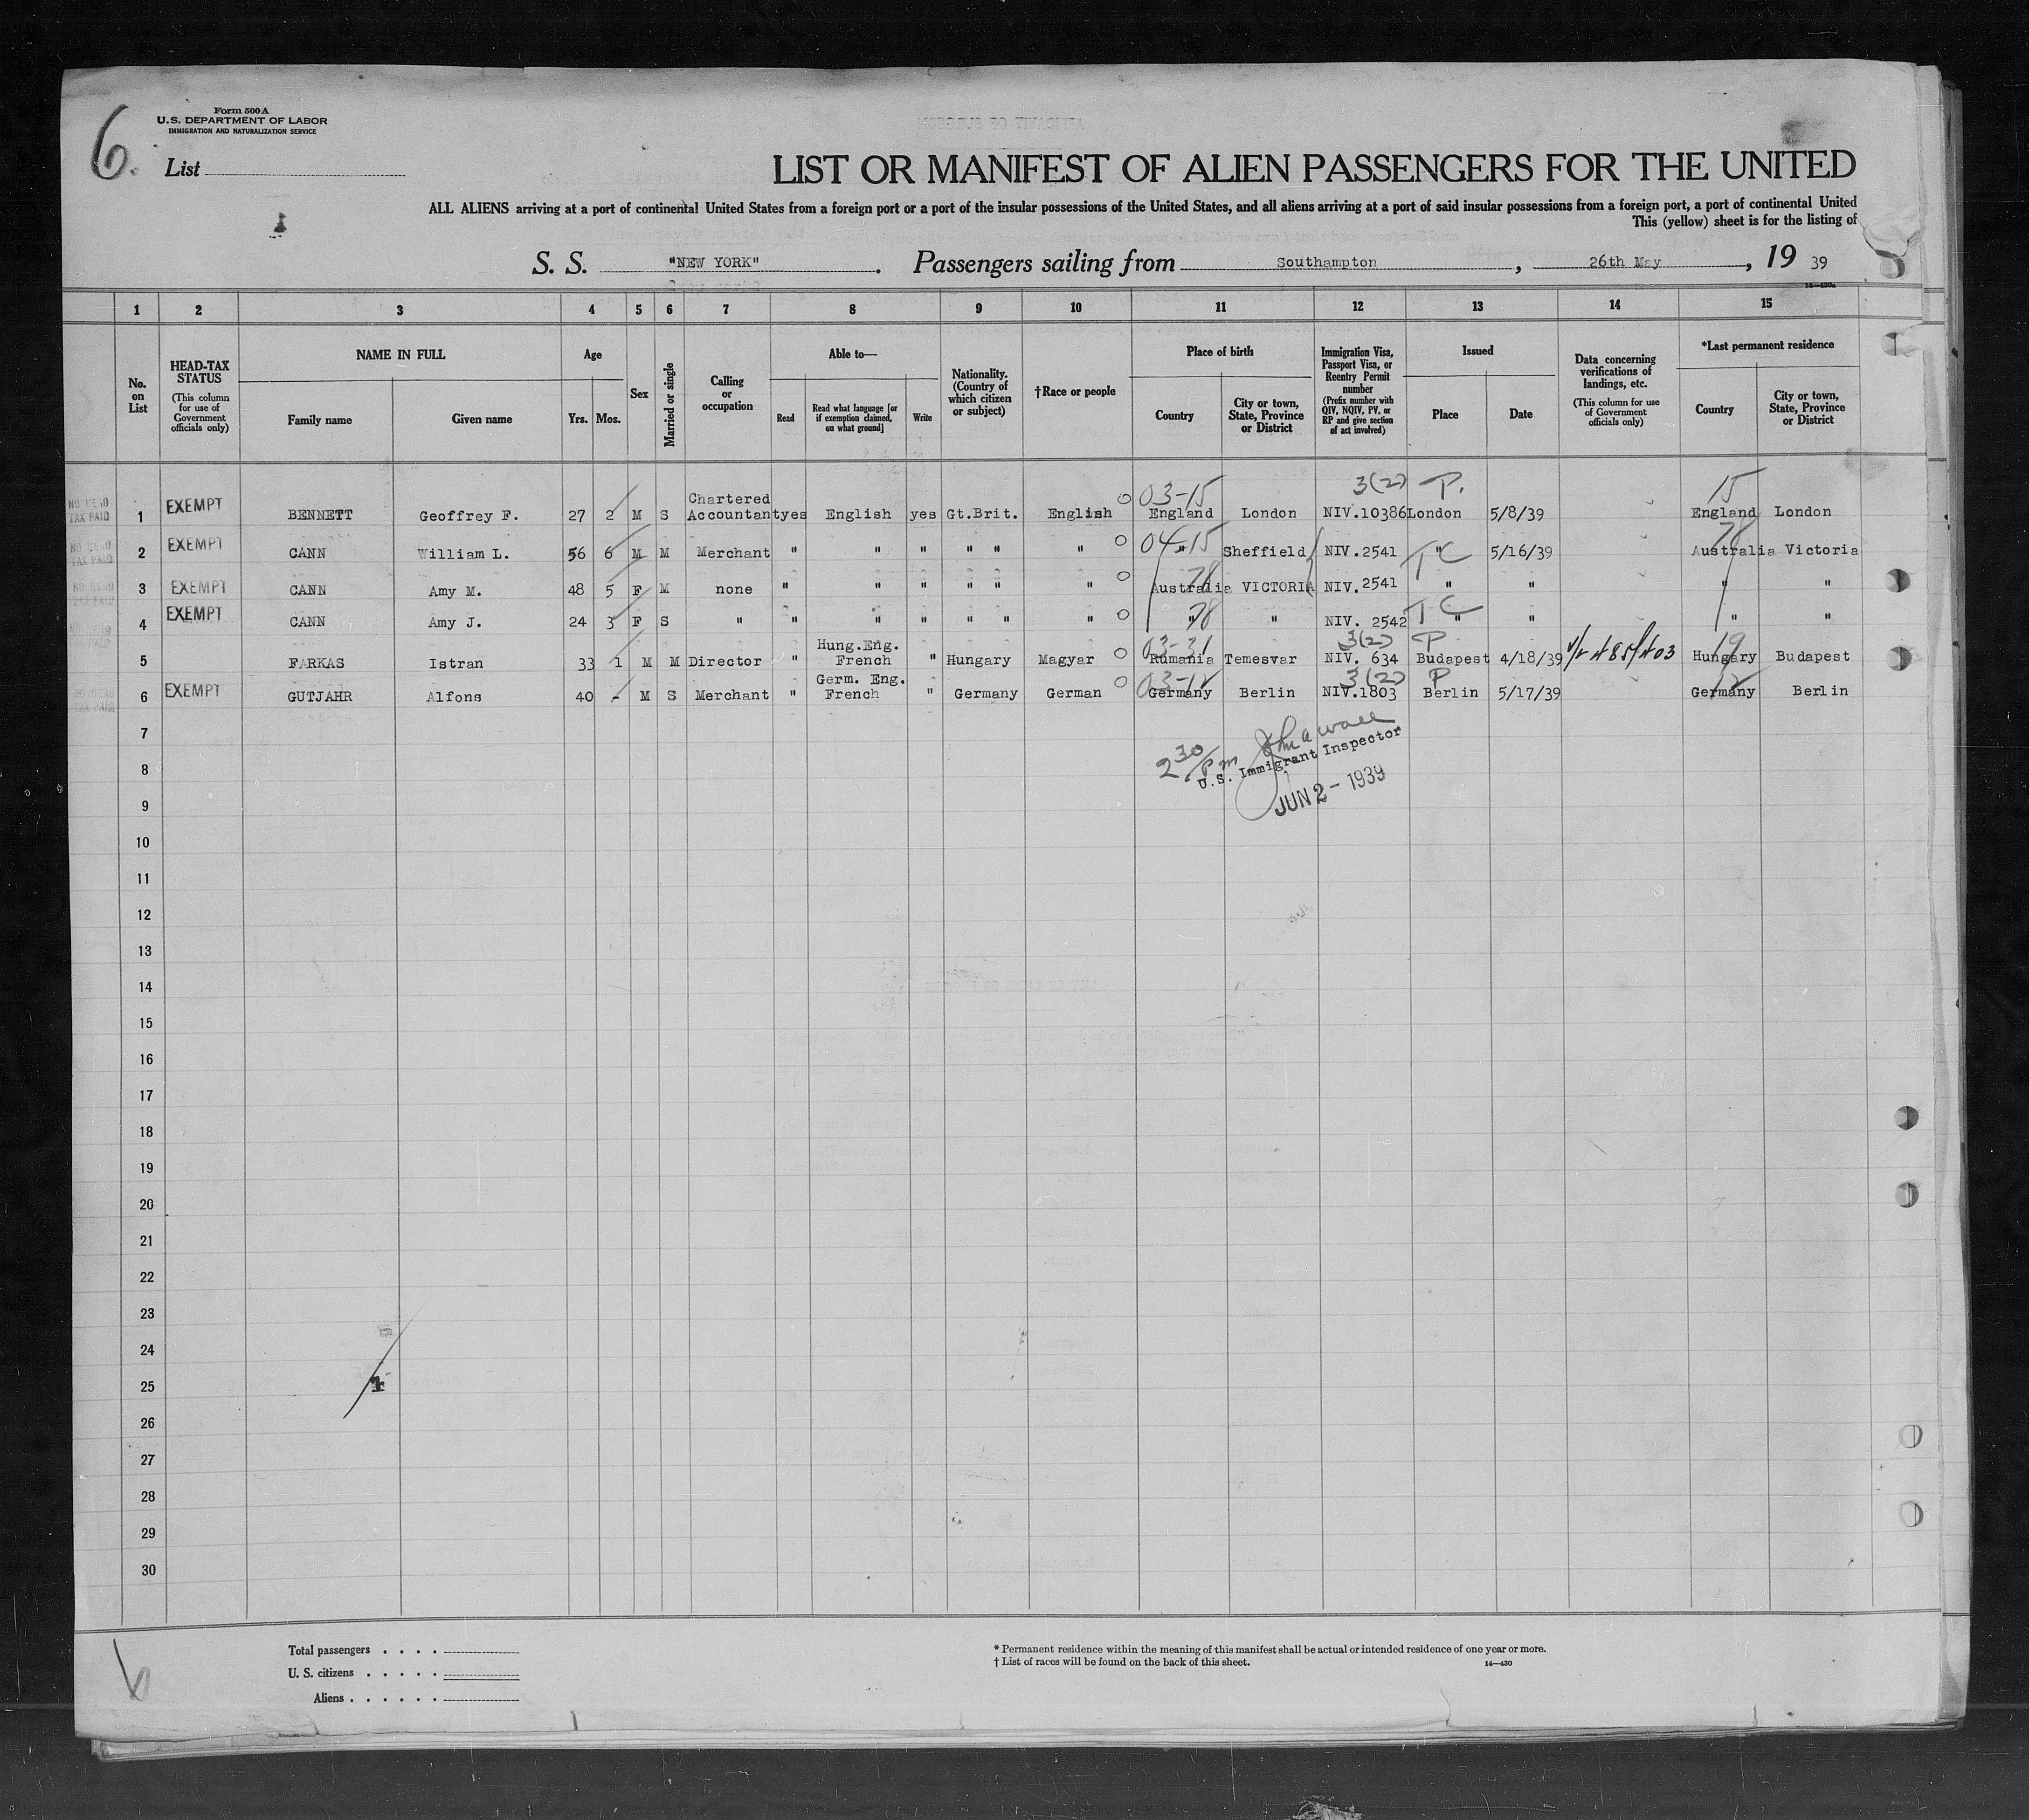 6.
Form 500 A
U.S. DEPARTMENT OF LABOR
IMMIGRATION AND NATURALIZATION SERVICE
List
1
LIST OR MANIFEST OF ALIEN PASSENGERS FOR THE UNITED
ALL ALIENS arriving at a port of continental United States from a foreign port or a port of the insular possessions of the United States, and all aliens arriving at a port of said insular possessions from a foreign port, a port of continental United
This (yellow) sheet is for the listing of
S. S. "NEW YORK". Passengers sailing from Southampton, 26th May, 19 39
1 2 3 4 5 6 7 8 9 10 11 12 13 14 15
No. on List
HEAD-TAX STATUS
(This column for use of Government officials only)
NAME IN FULL
Family name Given name
Age
Yrs. Mos.
Sex
Married or single
Calling or occupation
Able to—
Read Read what language [or if exemption claimed, on what ground] Write
Nationality. (Country of which citizen or subject)
†Race or people
Place of birth
Country City or town, State, Province or District
Immigration Visa, Passport Visa, or Reentry Permit number
(Prefix number with QIV, NQIV, PV, or RP and give section of act involved)
Issued
Place Date
Data concerning verifications of landings, etc.
(This column for use of Government officials only)
*Last permanent residence
Country City or town, State, Province or District
03-15 3(2) P. 15
NO HEAD TAX PAID 1 EXEMPT BENNETT Geoffrey F. 27 2 M S Chartered Accountant yes English yes Gt.Brit. English England London NIV.10386 London 5/8/39 England London
04-15 TC 78
NO HEAD TAX PAID 2 EXEMPT CANN William L. 56 6 M M Merchant " " " " " " " Sheffield NIV.2541 " 5/16/39 Australia Victoria
78
NO HEAD TAX PAID 3 EXEMPT CANN Amy M. 48 5 F M none " " " " " " Australia VICTORIA NIV.2541 " " " "
78 TC
NO HEAD TAX PAID 4 EXEMPT CANN Amy J. 24 3 F S " " " " " " " " " NIV. 2542 " " " "
03-31 3(2) P 19
5 FARKAS Istran 33 1 M M Director " Hung.Eng. French " Hungary Magyar Rumania Temesvar NIV. 634 Budapest 4/18/39 Hungary Budapest
03-12 3(2) P 12
NO HEAD TAX PAID 6 EXEMPT GUTJAHR Alfons 40 - M S Merchant " Germ. Eng. French " Germany German Germany Berlin NIV.1803 Berlin 5/17/39 Germany Berlin
7
2 30/pm
U.S. Immigrant Inspector
8
JUN 2 - 1939
9
10
11
12
13
14
15
16
17
18
19
20
21
22
23
24
25
26
27
28
29
30
Total passengers . . . .
U. S. citizens . . . . .
Aliens . . . . . .
* Permanent residence within the meaning of this manifest shall be actual or intended residence of one year or more.
† List of races will be found on the back of this sheet.
14—430